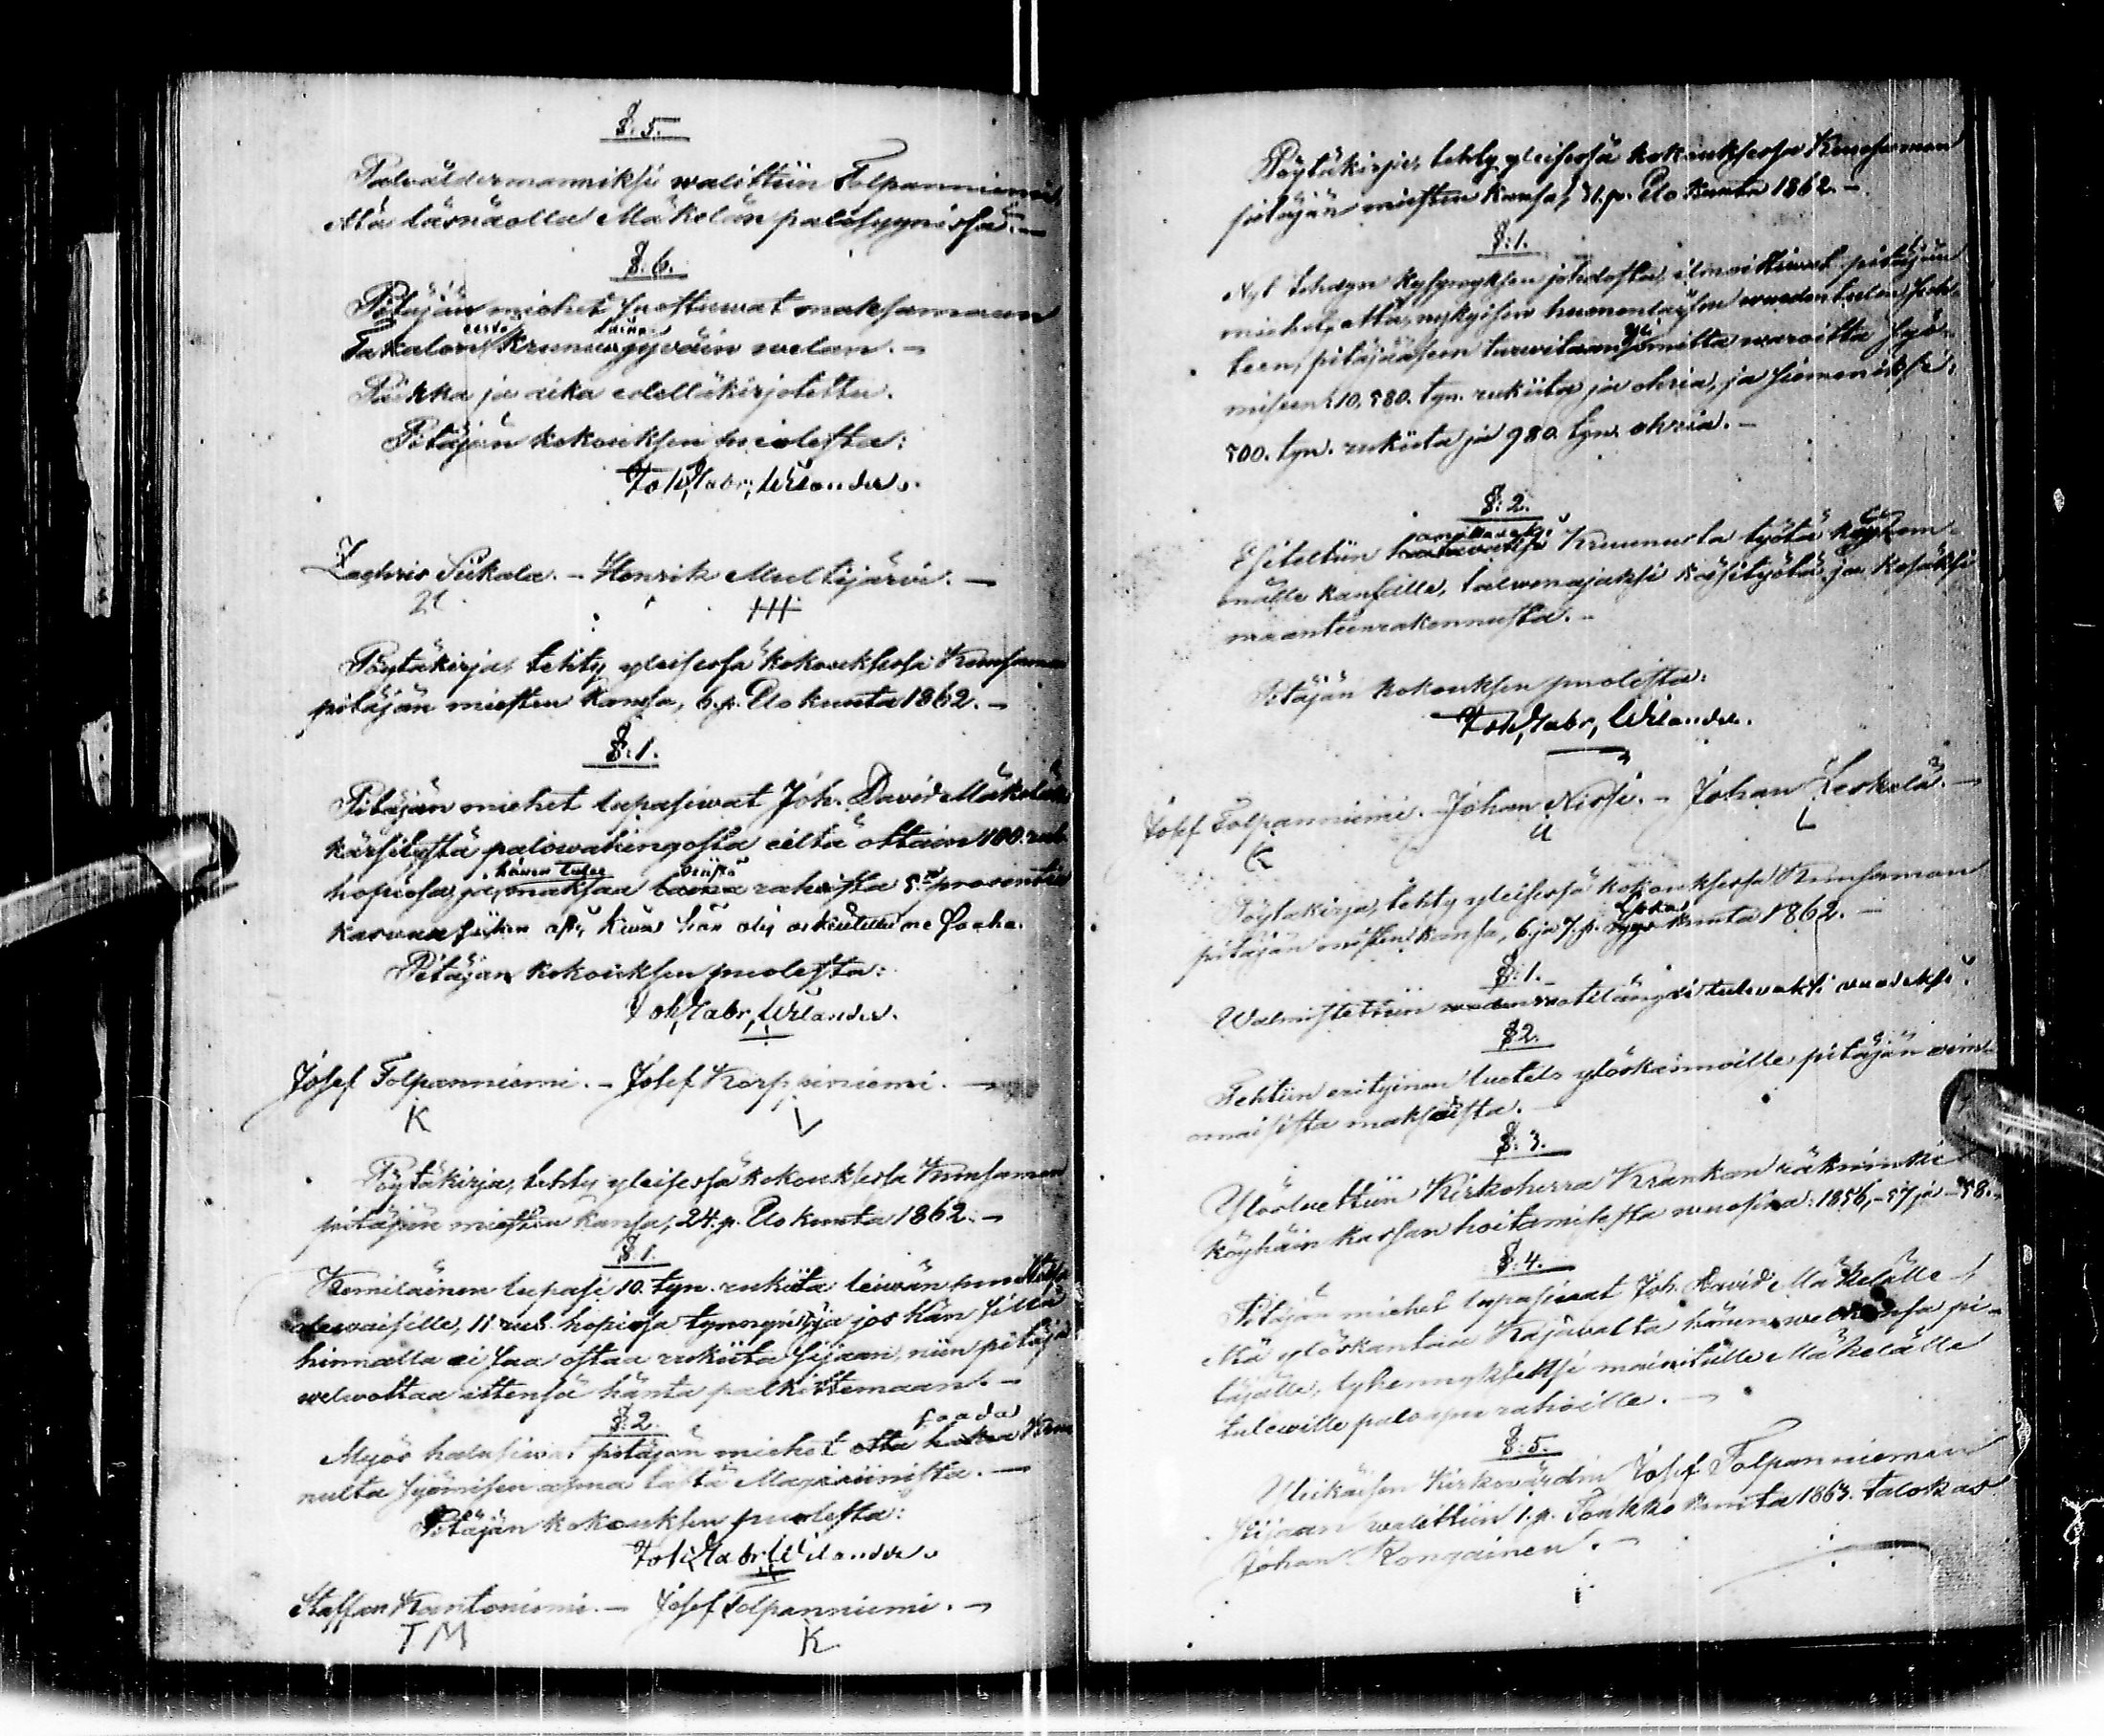 §. 5.
Paloäldermanniksi walittiin Tolpanniemi,
että läsnäolla Mäkelän palosyynissä. —
§. 6.
Pitäjän miehet suostuwat maksamaan
Takalon Kruunun jywäin welan. —
Paikka ja aika edelläkirjotettu.
Pitäjän kokouksen puolesta:
Joh, Gabr, Wilander.
Zachris Siikala. — Henrik Multijärvi. —
III
Pöytäkirja, tehty yleisessä kokouksessa Kuusamon
pitäjän miesten kansa, 6. p. Elo kuuta 1862. —
§: 1.
Pitäjän miehet lupasiwat Joh. David Mäkelän
kärsitystä palowahingosta eiltä ottain 100. rub.
hopiosa, ja, hänen tulee maksaa rahoista 5 prosenttia
kasvua
Pitäjän kokouksen puolesta:
Joh, Gabr, Wilander.
Josef Tolpanniemi. — Josef Korppiniemi. —
K L
Pöytäkirja, tehty yleisessä kokouksessa Kuusamon
pitäjän miesten kansa, 24. p. Elo kuuta 1862. —
§ 1.
Kemiläinen lupasi 10. tyn. rukiita leiwän puutteesa
olewaisille, 11 rub. hopiosa tynnyri, ja jos hän sillä
hinnalla ei saa ostaa rukiita sijaan, niin pitäjä
welwottaa ittensä häntä palkittemaan. —
§: 2.
Myös halusiwat pitäjän miehet saada Kruu-
nulta syömisen apua tästä Magasiinista. —
Pitäjän kokouksen puolesta:
Joh, Gabr, Wilander.
Staffan Kantoniemi. — Josef Tolpanniemi. —
TM K
Pöytäkirja, tehty yleisessä kokouksessa Kuusamon
pitäjän miesten kansa, 31. p. Elo kuuta 1862. —
§: 1.
Nyt tehdyn kysymyksen johdosta, ilmoittiwat pitäjän
miehet, että, nykyisen huomentaysen wuoden tulon suh-
teen, pitäjääseen tarwitaan yli omitta waroitta syö-
miseen: 10,580. tyn. rukiita ja ohria, ja siemeniksi:
500. tyn. rukiita ja 980. tyn. ohria. —
§: 2.
Esiteltiin anottawaksi Kruunulta työtä köyhem-
mälle kansalle, talwenajaksi käsityötä ja kesäksi
maantienrakennusta. —
Pitäjän kokouksen puolesta:
Joh, Gabr, Wilander.
Josef Tolpanniemi. — Johan Nissi. — Johan Leskelä. —
K U L
Pöytäkirja, tehty yleisessä kokouksessa Kuusamon
pitäjän miesten kansa, 6. ja 7. p. Loka kuuta 1862. —
§: 1.
Walmistettiin waotilängdi tulewaksi wuodeksi.
§ 2.
Tehtiin erityinen luettelo ylöskannoille pitäjän
omaisista maksuista. —
§: 3.
Ylösluettiin Kirkoherra Krankan räkninki
köyhäin kassan hoitamisesta wuosina: 1856, -57 ja -58. —
§: 4.
Pitäjän miehet lupasiwat Joh. David Mäkelälle,
että ylöskantaa Kajavalta hänen welkansa pi-
täjälle, lyhennykseksi mainitulle Mäkelälle
tulewille paloapu rahoille. —
§: 5.
Ylikäisen Kirkovärdin Josef Tolpanniemen
sijaan walittiin 1. p. Toukko kuuta 1863. talokas
Johan Kongainen. —